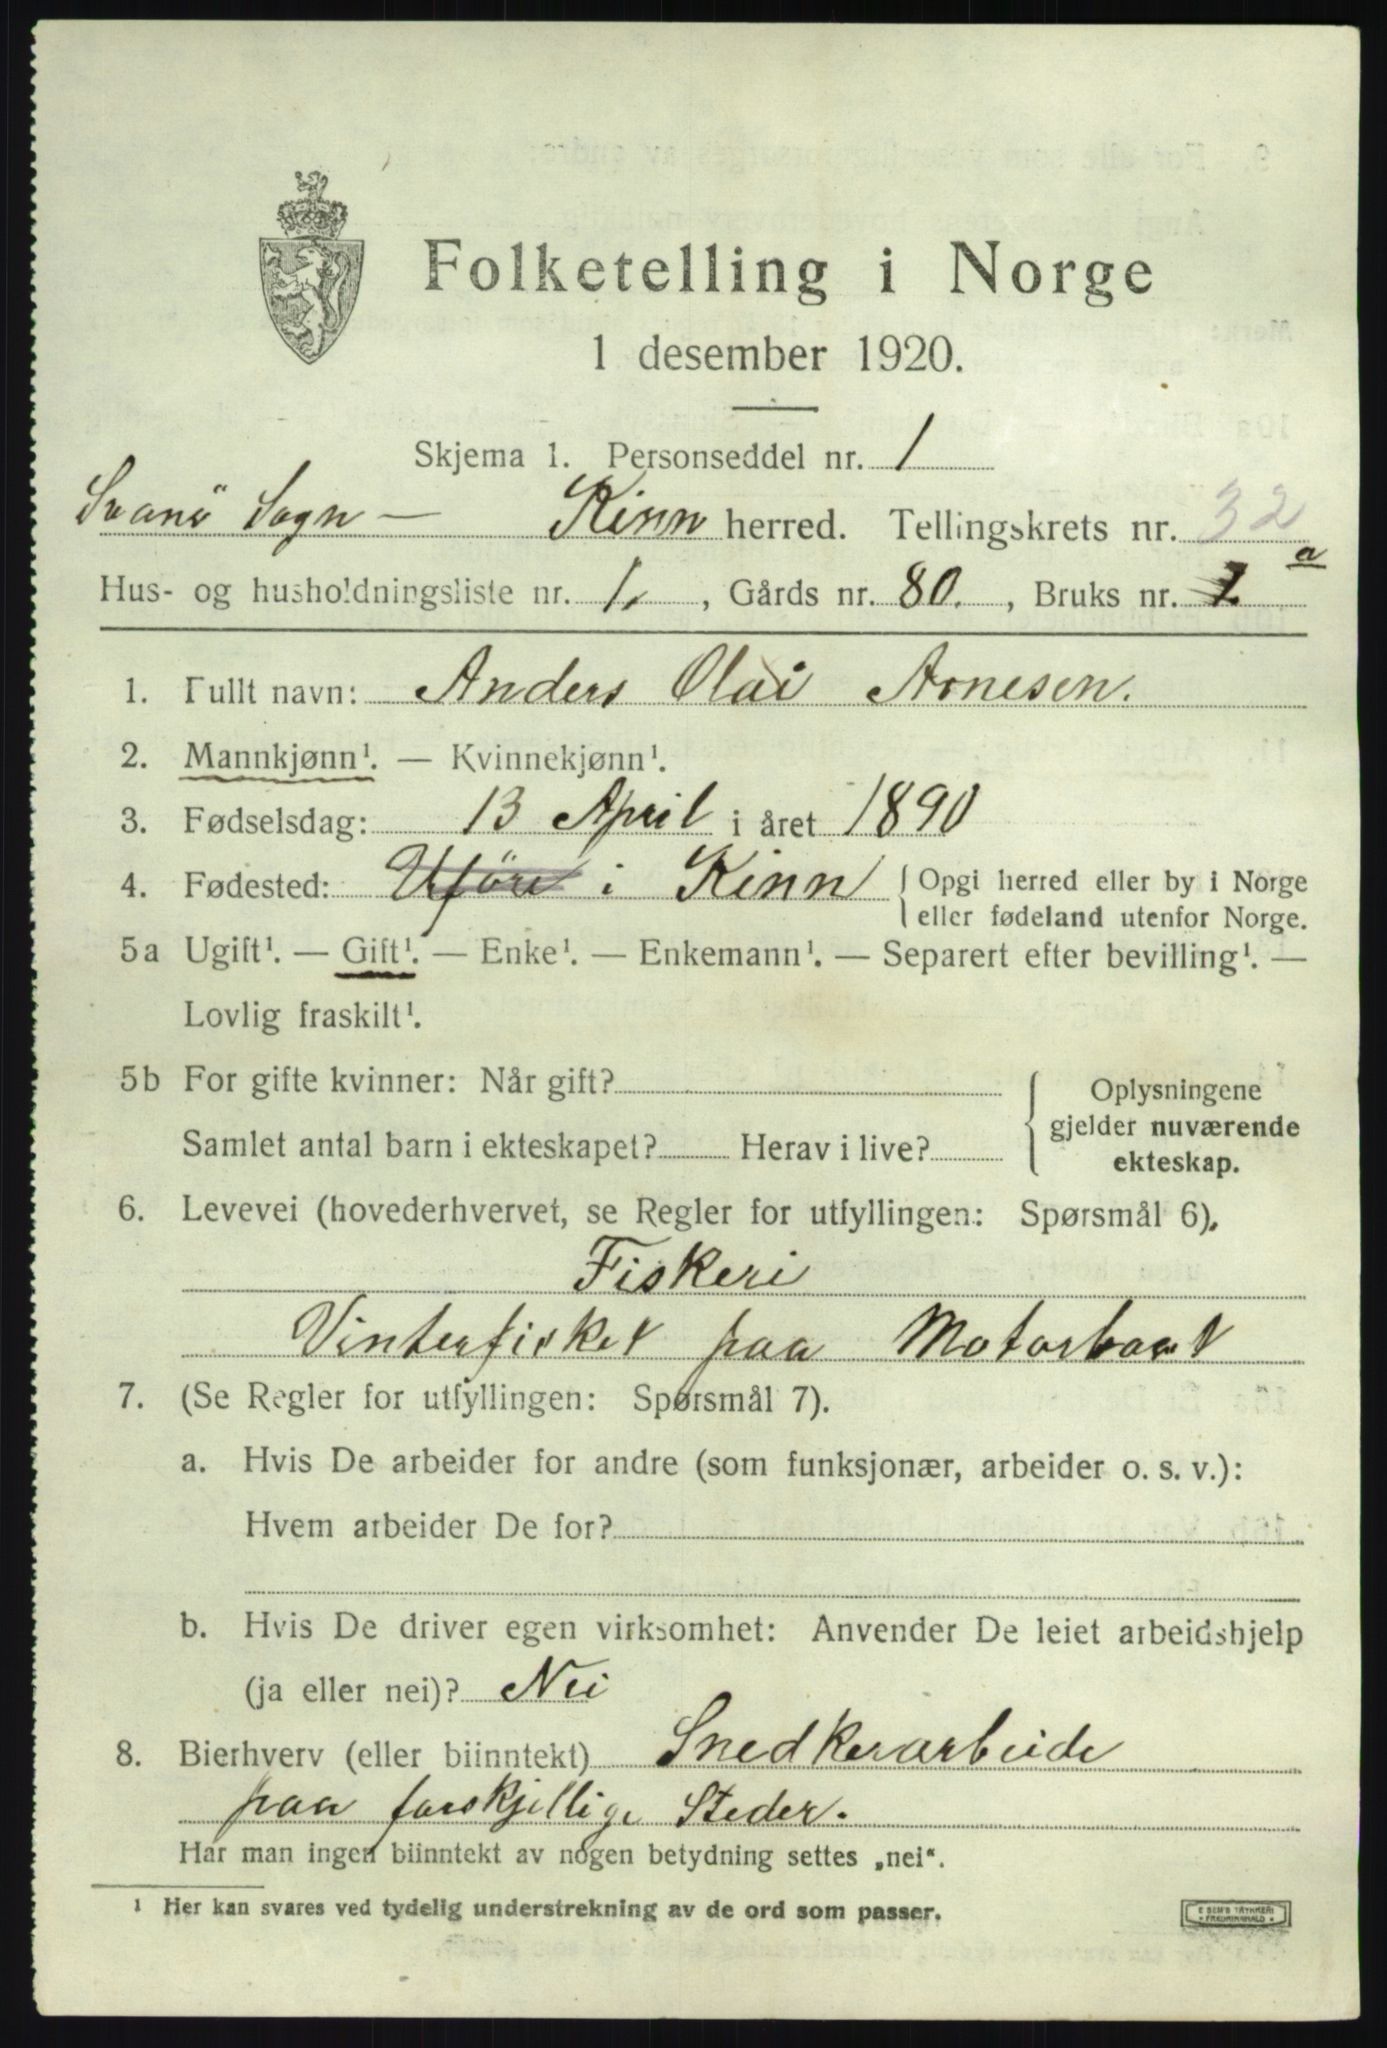 Folketelling i Norge
1 desember 1920.
Skjema 1. Personseddel nr. 1
Svanö Sogn — Kinn herred. Tellingskrets nr. 32
Hus- og husholdningsliste nr. 1, Gårds nr. 80. , Bruks nr. 1 a
1. Fullt navn: Anders Olai Arnesen.
2. Mannkjønn¹. — Kvinnekjønn¹.
3. Fødselsdag: 13 April i året 1890
4. Fødested: Uføre i Kinn { Opgi herred eller by i Norge
eller fødeland utenfor Norge.
5a Ugift¹. — Gift¹. — Enke¹. — Enkemann¹. — Separert efter bevilling¹. —
Lovlig fraskilt¹.
5b For gifte kvinner: Når gift?
Samlet antal barn i ekteskapet? Herav i live?
Oplysningene
gjelder nuværende
ekteskap.
6. Levevei (hovederhvervet, se Regler for utfyllingen: Spørsmål 6).
Fiskeri
Vinterfisket paa Motorbaat
7. (Se Regler for utfyllingen: Spørsmål 7).
a. Hvis De arbeider for andre (som funksjonær, arbeider o. s. v.):
Hvem arbeider De for?
b. Hvis De driver egen virksomhet: Anvender De leiet arbeidshjelp
(ja eller nei)? Nei
8. Bierhverv (eller biinntekt) Snedkerarbeide
paa forskjellige Steder.
Har man ingen biinntekt av nogen betydning settes „nei“.
¹ Her kan svares ved tydelig understrekning av de ord som passer.
E SEM'S TRYKKERI
FREDRIKSHALD